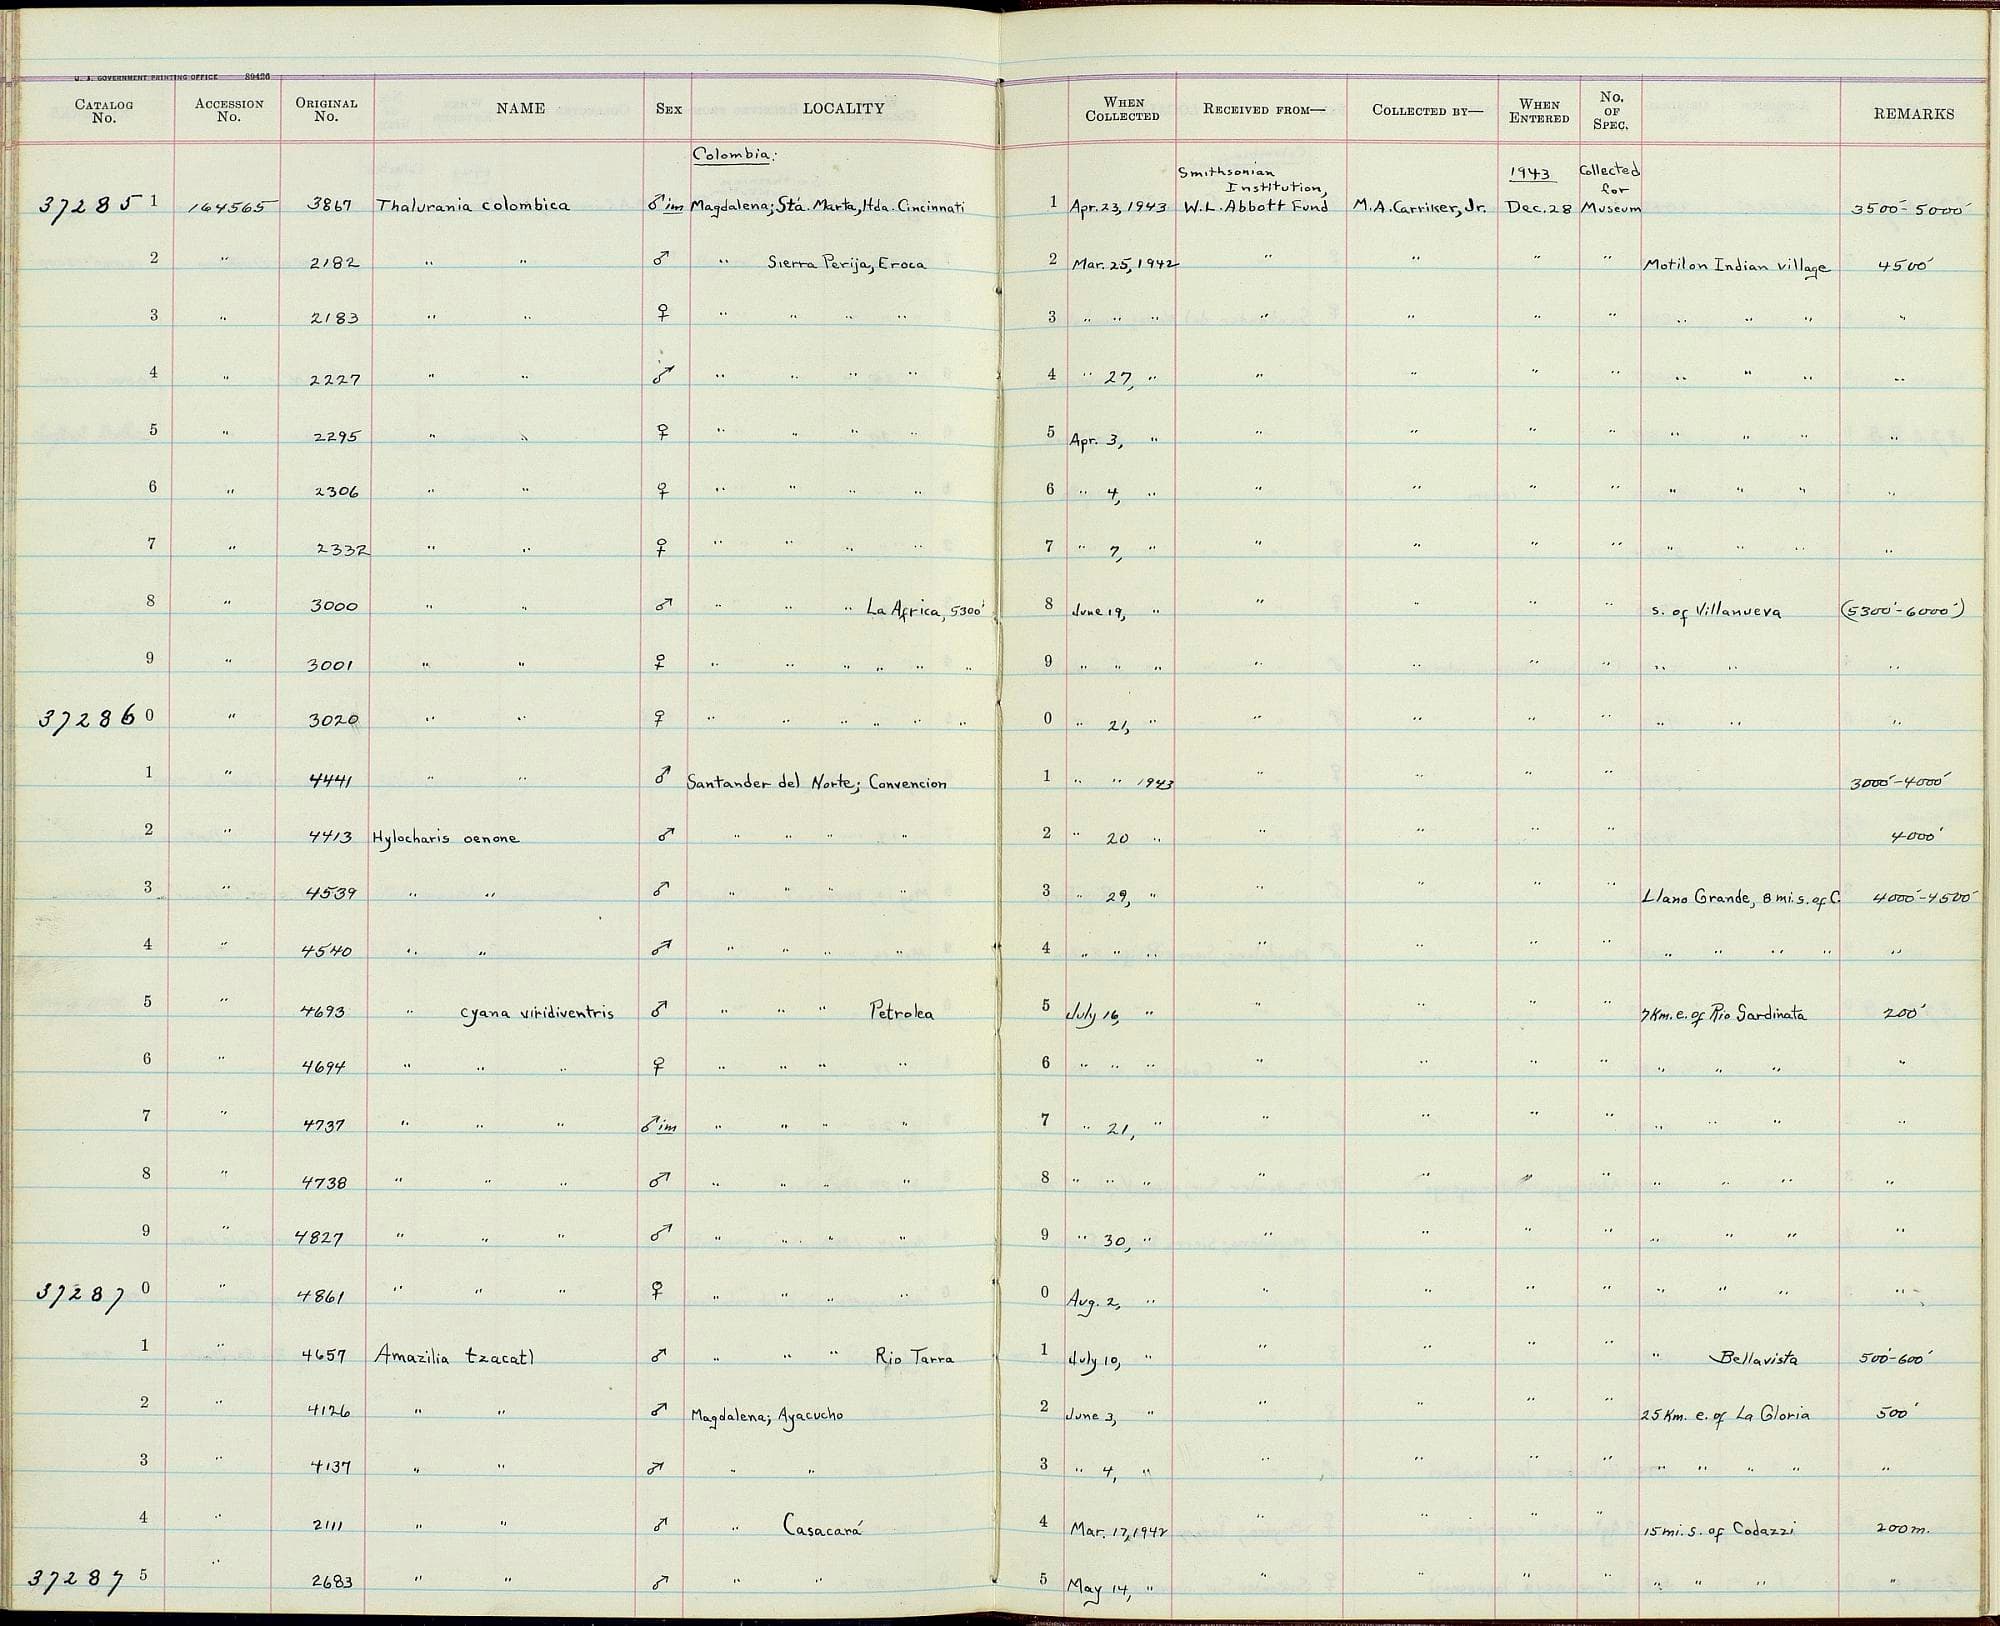 U. S. GOVERNMENT PRINTING OFFICE 89426
CATALOG No. ACCESSION No. ORIGINAL No. NAME SEX LOCALITY WHEN COLLECTED RECEIVED FROM— COLLECTED BY— WHEN ENTERED No. OF SPEC. REMARKS
Colombia: Smithsonian Institution, 1943 Collected for
37285 1 164565 3867 Thalurania colombica ♂ im Magdalena; Sta. Marta, Hda. Cincinnati 1 Apr. 23, 1943 W. L. Abbott Fund M. A. Carriker, Jr. Dec. 28 Museum 3500'-5000'
2 " 2182 " " ♂ " Sierra Perija, Eroca 2 Mar. 25, 1942 " " " " Motilon Indian village 4500'
3 " 2183 " " ♀ " " " " 3 " " " " " " " " " " "
4 " 2227 " " ♂ " " " " 4 " 27, " " " " " " " " "
5 " 2295 " " ♀ " " " " 5 Apr. 3, " " " " " " " " "
6 " 2306 " " ♀ " " " " 6 " 4, " " " " " " " " "
7 " 2332 " " ♀ " " " " 7 " 7, " " " " " " " " "
8 " 3000 " " ♂ " " " La Africa, 5300' 8 June 19, " " " " " s. of Villanueva (5300'-6000')
9 " 3001 " " ♀ " " " " " " 9 " " " " " " " " " "
37286 0 " 3020 " " ♀ " " " " " " 0 " 21, " " " " " " " "
1 " 4441 " " ♂ Santander del Norte; Convencion 1 " " 1943 " " " " 3000'-4000'
2 " 4413 Hylocharis oenone ♂ " " " " 2 " 20 " " " " " 4000'
3 " 4539 " " ♂ " " " " 3 " 29, " " " " " Llano Grande, 8 mi. s. of C. 4000'-4500'
4 " 4540 " " ♂ " " " " 4 " " " " " " " " " " " "
5 " 4693 " cyana viridiventris ♂ " " " Petrolea 5 July 16, " " " " " 7 Km. e. of Rio Sardinata 200'
6 " 4694 " " " ♀ " " " " 6 " " " " " " " " " " "
7 " 4737 " " " ♂ im " " " " 7 " 21, " " " " " " " " "
8 " 4738 " " " ♂ " " " " 8 " " " " " " " " " " "
9 " 4827 " " " ♂ " " " " 9 " 30, " " " " " " " " "
37287 0 " 4861 " " " ♀ " " " " 0 Aug. 2, " " " " " " " " "
1 " 4657 Amazilia tzacatl ♂ " " " Rio Tarra 1 July 10, " " " " " " Bellavista 500'-600'
2 " 4126 " " ♂ Magdalena; Ayacucho 2 June 3, " " " " " 25 Km. e. of La Gloria 500'
3 " 4137 " " ♂ " " 3 " 4, " " " " " " " " " "
4 " 2111 " " ♂ " Casacará 4 Mar. 17, 1942 " " " " 15 mi. s. of Codazzi 200 m.
37287 5 " 2683 " " ♂ " " 5 May 14, " " " " " " " " "